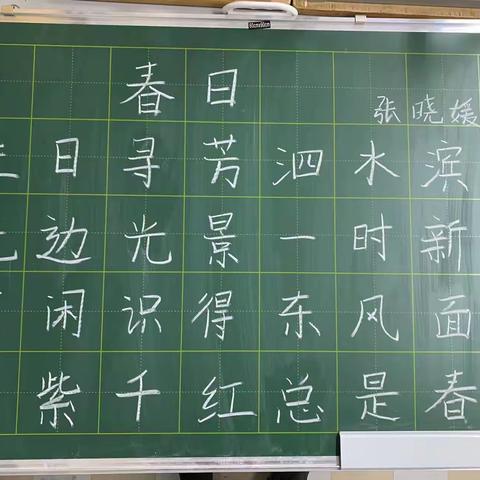 春日
张晓媛
日寻芳泗水滨
边光景一时新
闲识得东风面
紫千红总是春